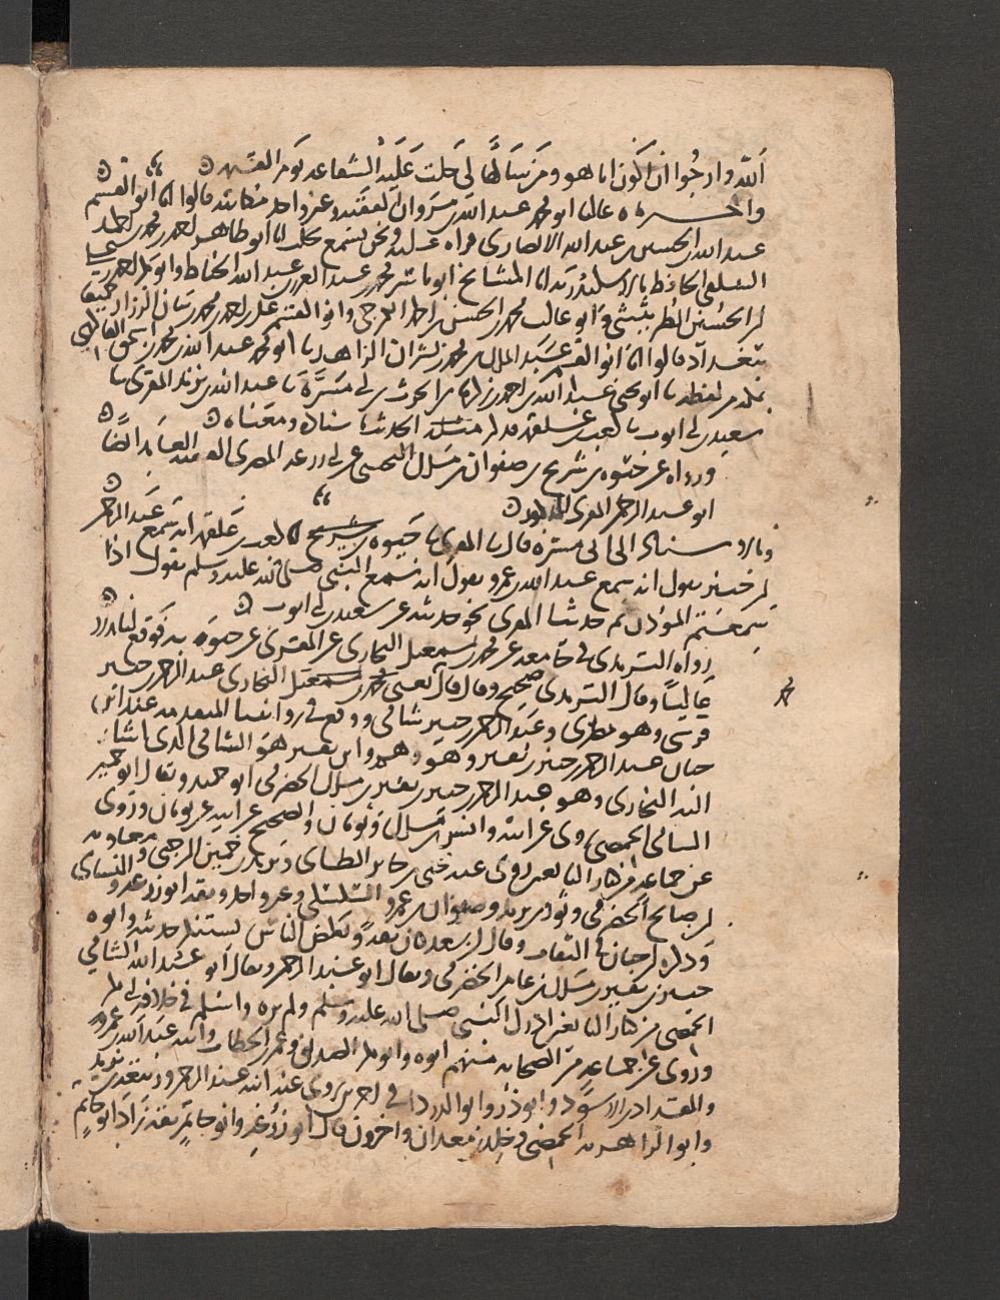 الله وارجوا ان اكون انا هو ومن سالها لي حلت عليه الشفاعه يوم القيمه
عاليا ابو محمد عبد الله بن مروان الفقيه وغير واحد قالوا انا ابو القسم
عبد الله بن الحسين بن عبد الله الانصاري قراه عليه ونحن نسمع بحلب انا ابو طاهر احمد بن محمد بن احمد
السلفي الحافظ بالاسكندريه انا المشايخ ابو ياسر محمد بن عبد العزيز بن عبد الله الخياط وابو بكر احمد بن علي
ابن الحسين الطريثيثي وابو غالب محمد بن الحسن بن احمد الكرجي وابو القسم علي بن احمد بن محمد بن بيان الرزاز جميعا
ببغداد قالوا انا ابو القسم عبد الملك بن محمد بن بشران الزاهد نا ابو محمد عبد الله بن محمد بن اسحق الفاكهي
بمكه من لفظه نا ابو يحيى عبد الله بن احمد بن زكريا بن الحرث بن ابي مسرة نا عبد الله بن يزيد المقري نا
سعيد بن ابي ايوب نا كعب بن علقمه فذكر مثله اسناده ومعناه
ورواه عن حيوه بن شريح بن صفوان بن مالك التجيبي ابي زرعه المصري الفقيه العابد ايضا
ابو عبد الرحمن المقري المذكور
وبالاسناد الى ابن ابي مسرة قال نا المقري نا حيوه بن شريح انا كعب بن علقمه انه سمع عبد الرحمن
ابن جبير يقول انه سمع عبد الله بن عمرو يقول انه سمع النبي صلى الله عليه وسلم يقول اذا
سمعتم المؤذن ثم حدثنا المقري نحو حديثه عن سعيد بن ابي ايوب
رواه الترمذي في جامعه عن محمد بن اسمعيل البخاري عن المقري عن حيوه به فوقع لنا بدلا
عاليا وقال الترمذي صحيح وقال قال يعني محمد بن اسمعيل البخاري عبد الرحمن بن جبير
قرشي وهو مصري وعبد الرحمن بن جبير شامي ووقع في روايتنا المتقدمه عند ابن
حبان عبد الرحمن بن جبير بن نفير وهو وهم وابن نفير هو الشامي الذي اشار
اليه البخاري وهو عبد الرحمن بن جبير بن نفير بن مالك الحضرمي ابو حميد ويقال ابو حمير
الشامي الحمصي روى عن ابيه وانس بن مالك وثوبان والصحيح عن ابيه عن ثوبان وروى
عن جماعه من كبار التابعين روى عنه يحيى بن جابر الطائي ويزيد بن خمير الرحبي ومعاويه
ابن صالح الحضرمي وثور بن يزيد وصفوان بن عمرو السكسكي وغير واحد وثقه ابو زرعه والنسائي
وذكره ابن حبان في الثقات وقال ابن سعد كان ثقه وبعض الناس يستنكر حديثه وابوه
جبير بن نفير بن مالك بن عامر الحضرمي ويقال ابو عبد الرحمن ويقال ابو عبد الله الشامي
الحمصي من كبار التابعين ادرك النبي صلى الله عليه وسلم ولم يره واسلم في خلافة ابي بكر
وروى عن جماعه من الصحابه منهم ابوه وابو بكر الصديق وعمر بن الخطاب وابنه عبد الله بن عمر
والمقداد بن الاسود وابو ذر وابو الدرداء في اخرين روى عنه ابنه عبد الرحمن وربيعه بن يزيد
وابو الزاهريه الحمصي وخالد بن معدان واخرون قال ابو زرعه وابو حاتم ثقه زاد ابو حاتم